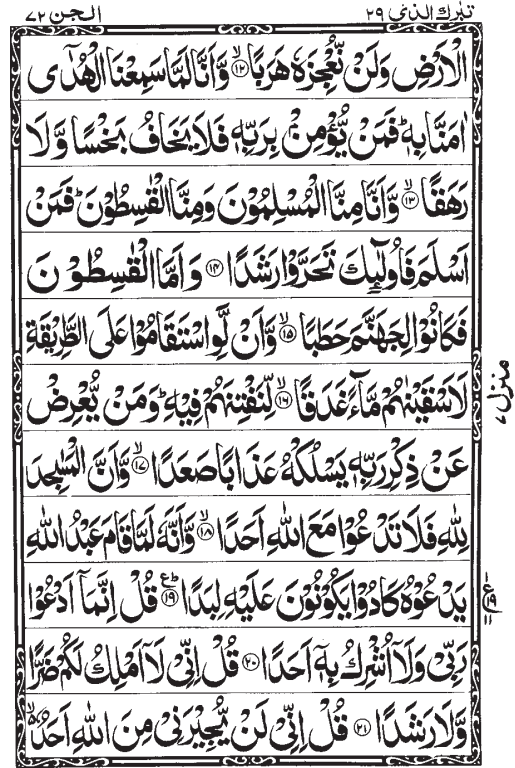 تبٰرك الذى ۲۹
الجن ۷۲
الْاَرْضِ وَلَنْ نُّعْجِزَهٗ هَرَبًا ۙ﴿۱۲﴾ وَّاَنَّا لَمَّا سَمِعْنَا الْهُدٰٓى
اٰمَنَّا بِهٖ ؕ فَمَنْ يُّؤْمِنْۢ بِرَبِّهٖ فَلَا يَخَافُ بَخْسًا وَّلَا
رَهَقًا ۙ﴿۱۳﴾ وَّاَنَّا مِنَّا الْمُسْلِمُوْنَ وَمِنَّا الْقٰسِطُوْنَ ؕ فَمَنْ
اَسْلَمَ فَاُولٰٓئِكَ تَحَرَّوْا رَشَدًا ﴿۱۴﴾ وَاَمَّا الْقٰسِطُوْنَ
فَكَانُوْا لِجَهَنَّمَ حَطَبًا ۙ﴿۱۵﴾ وَّاَنْ لَّوِ اسْتَقَامُوْا عَلَى الطَّرِيْقَةِ
لَاَسْقَيْنٰهُمْ مَّآءً غَدَقًا ۙ﴿۱۶﴾ لِّنَفْتِنَهُمْ فِيْهِ ؕ وَمَنْ يُّعْرِضْ
عَنْ ذِكْرِ رَبِّهٖ يَسْلُكْهُ عَذَابًا صَعَدًا ۙ﴿۱۷﴾ وَّاَنَّ الْمَسٰجِدَ
لِلّٰهِ فَلَا تَدْعُوْا مَعَ اللّٰهِ اَحَدًا ۙ﴿۱۸﴾ وَّاَنَّهٗ لَمَّا قَامَ عَبْدُ اللّٰهِ
يَدْعُوْهُ كَادُوْا يَكُوْنُوْنَ عَلَيْهِ لِبَدًا ؕع﴿۱۹﴾ قُلْ اِنَّمَآ اَدْعُوْا
رَبِّىْ وَلَآ اُشْرِكُ بِهٖٓ اَحَدًا ﴿۲۰﴾ قُلْ اِنِّىْ لَآ اَمْلِكُ لَكُمْ ضَرًّا
وَّلَا رَشَدًا ﴿۲۱﴾ قُلْ اِنِّىْ لَنْ يُّجِيْرَنِىْ مِنَ اللّٰهِ اَحَدٌ ۙ
منزل ۷